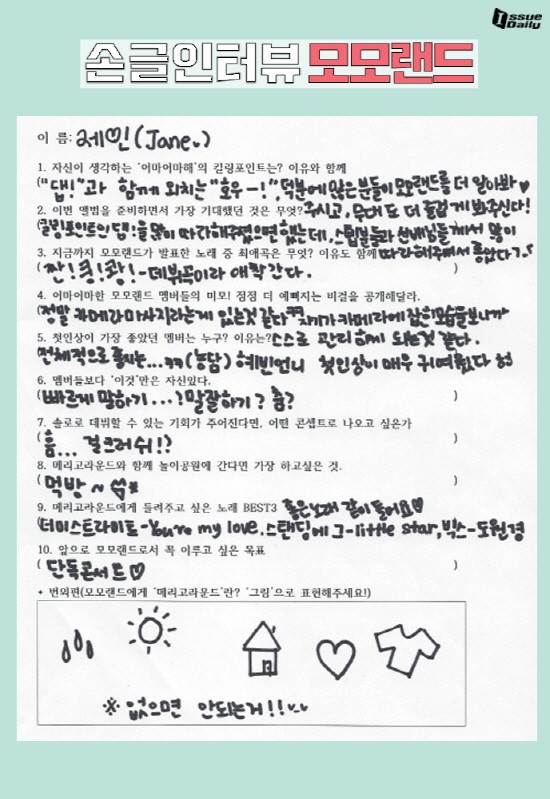 Issue Daily
손글인터뷰 모모랜드
이 름: 제인 (Jane.)
1. 자신이 생각하는 '어마어마해'의 킬링포인트는? 이유와 함께
("댑!"과 함께 외치는 "호우-!", 덕분에 많은 분들이 모모랜드를 더 알아봐♡
2. 이번 앨범을 준비하면서 가장 기대했던 것은 무엇? 주시고, 무대 또 더 즐겁게 봐주신다!
(킬링포인트인 댑!을 많이 따라해주셨으면 했는데, 스텝분들과 선배님들께서 많이
3. 지금까지 모모랜드가 발표한 노래 중 최애곡은 무엇? 이유도 함께 따라해주셔서 좋았다ㄱ.ㄱ
(짠!쿵!쾅! - 데뷔곡이라 애착간다. )
4. 어마어마한 모모랜드 멤버들의 미모! 점점 더 예뻐지는 비결을 공개해달라.
(정말 카메라마사지라는게 있는것 같다ㅋㅋ 자기가 카메라에 잡힌 모습을 보니까
5. 첫인상이 가장 좋았던 멤버는 누구? 이유는? 스스로 관리하게 되는것 같다.
(전체적으로 흠시는...ㅋㅋ (농담) 혜빈언니 첫인상이 매우 귀여웠다 헝
6. 멤버들보다 '이것'만은 자신있다.
(빠르게 말하기...? 말잘하기? 춤? )
7. 솔로로 데뷔할 수 있는 기회가 주어진다면, 어떤 콘셉트로 나오고 싶은가
(흠... 걸크러쉬!? )
8. 메리고라운드와 함께 놀이공원에 간다면 가장 하고싶은 것.
(먹방~ )
9. 메리고라운드에게 들려주고 싶은 노래 BEST3 좋은노래 같이 들어요♡
(더이스트라이트-You're my love, 스탠딩에그-little star, 빅스-도원경
10. 앞으로 모모랜드로서 꼭 이루고 싶은 목표
(단독콘서트♡ )
+ 번외편(모모랜드에게 '메리고라운드'란? '그림'으로 표현해주세요!)
※ 없으면 안되는거!!